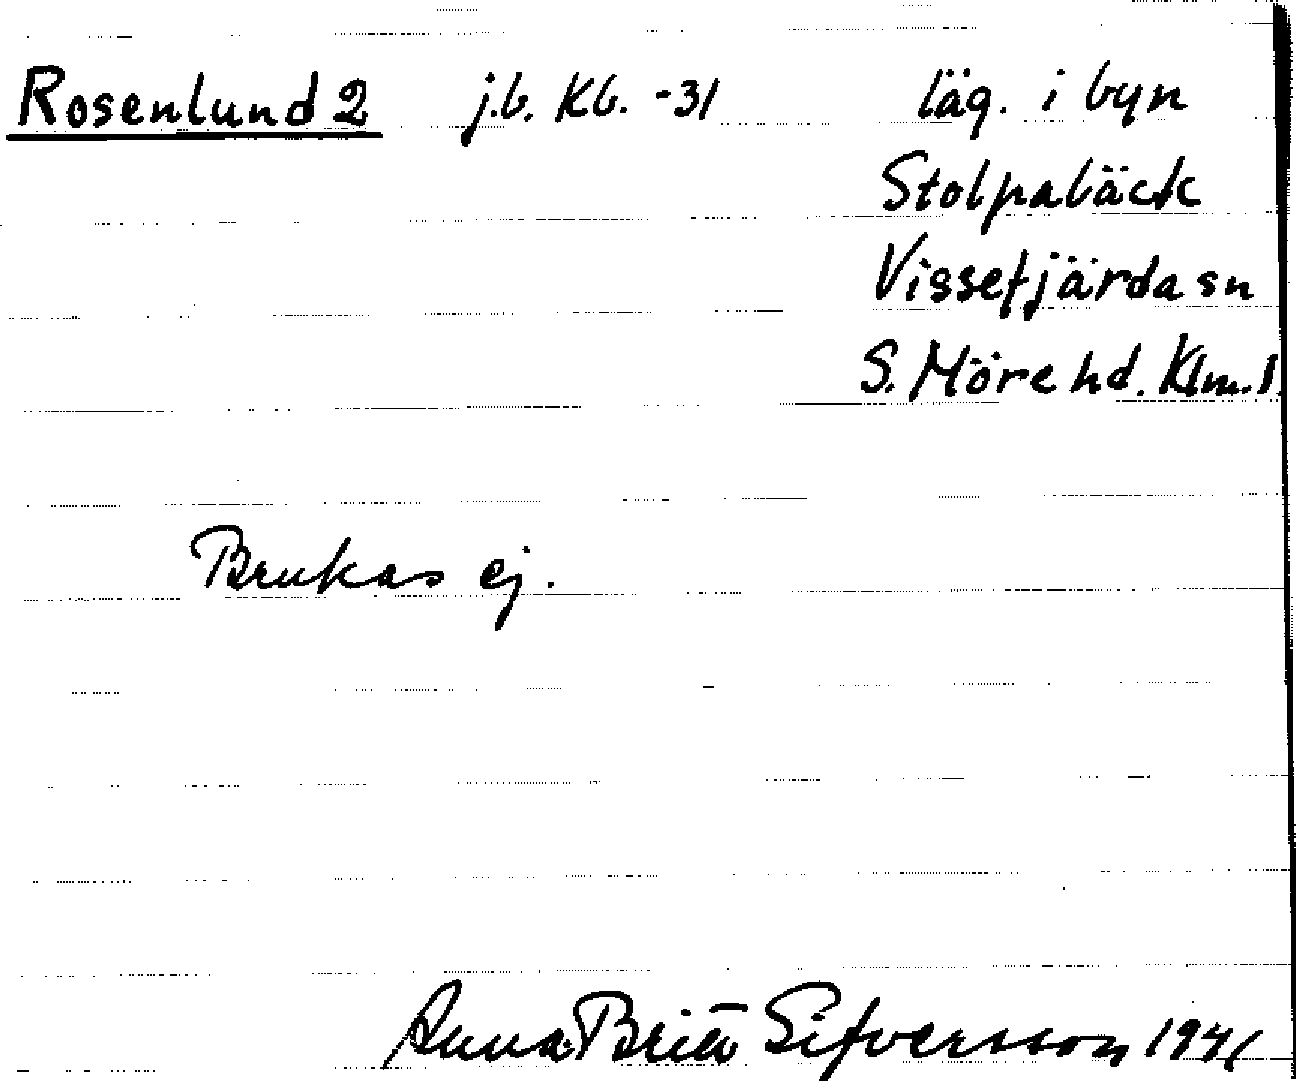 Rosenlund 2 j.b. Kb. -31 läg. i byn
Stolpabäck
Vissefjärda sn
S. Möre hd. Klm. l.
Brukas ej.
Anna Brita Sifversson 1941